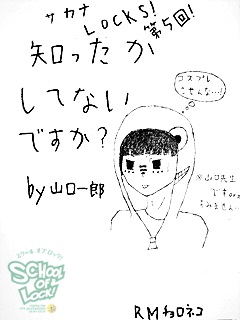 サカナLOCKS!
第5回!
知ったか
してない
ですか?
by山口一郎
コスプレ
させんな…!
※山口先生
ですorz
すみません…
スクール オブ ロック!
SCHOOL
OF
LOCK!
RMチョロネコ